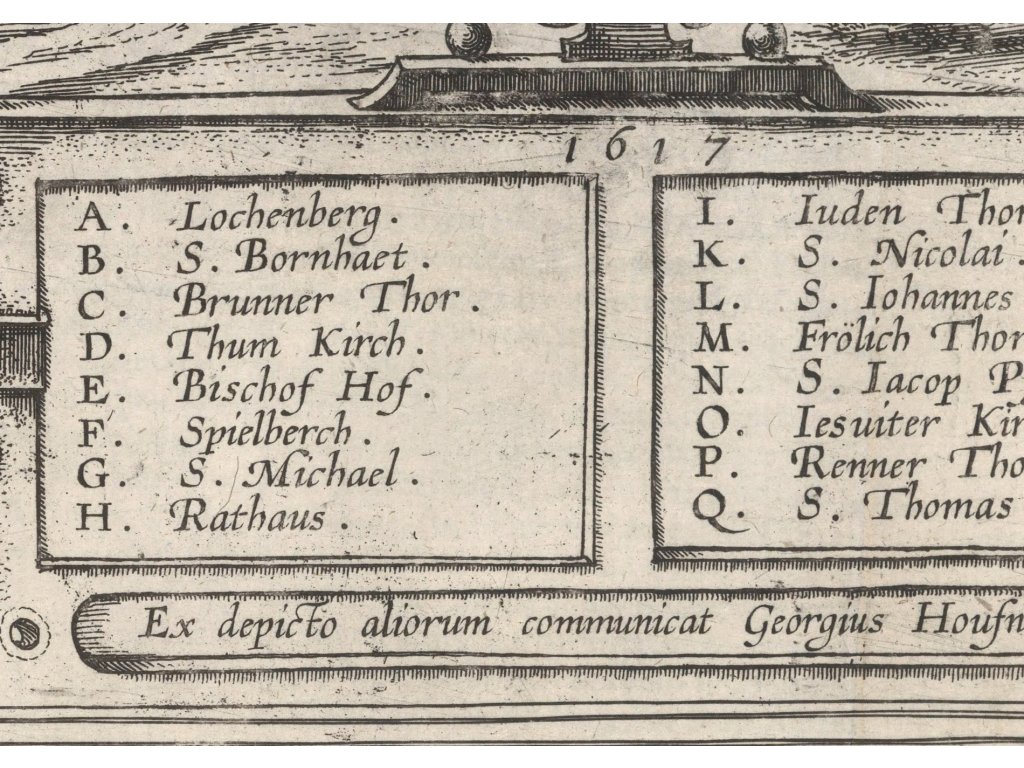 1617
A. Lochenberg.
B. S. Bornhaet.
C. Brunner Thor.
D. Thum Kirch.
E. Bischof Hof.
F. Spielberch.
G. S. Michael.
H. Rathaus.
I. Iuden Thor
K. S. Nicolai.
L. S. Iohannes
M. Frölich Thor
N. S. Iacop
O. Iesuiter Kir
P. Renner Tho
Q. S. Thomas
Ex depicto aliorum communicat Georgius Houfn